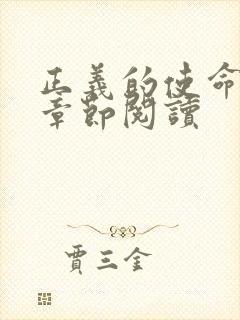 正義的使命
章節閱讀
賈三金